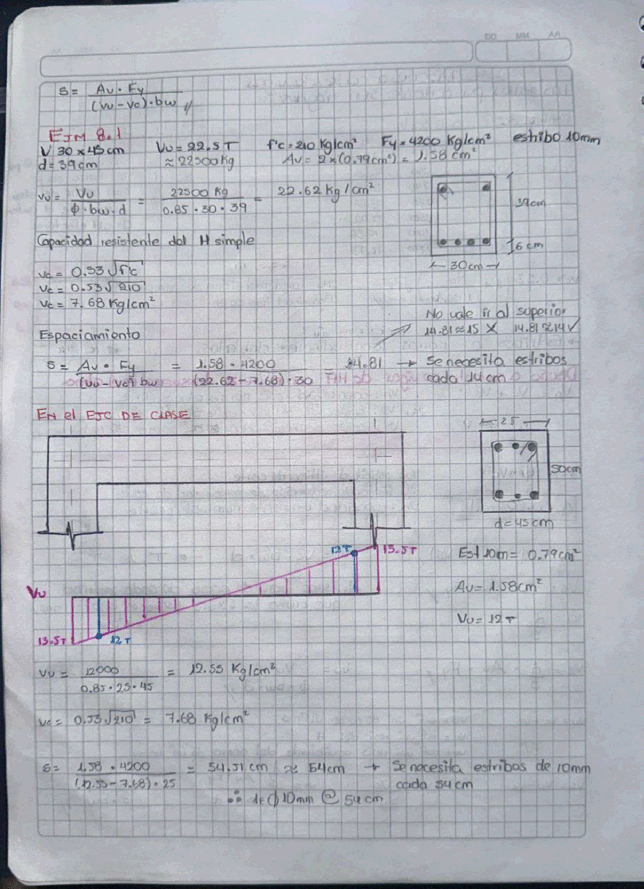 DD MM AA
S = Av · Fy / (vu - vc) · bw //
EJM 8.1
V 30 x 45 cm Vu = 22.5 T f'c = 210 Kg/cm² Fy = 4200 Kg/cm² estribo 10mm
d = 39 cm ≈ 22500 Kg Av = 2 × (0.79 cm²) = 1.58 cm²
vu = Vu / φ · bw · d = 22500 Kg / 0.85 · 30 · 39 = 22.62 Kg/cm²
39cm
6 cm
30cm
Capacidad resistente del H simple
vc = 0.53 √f'c
vc = 0.53 √210
vc = 7.68 Kg/cm²
No vale ir al superior
14.81 ≈ 15 X 14.81 ≈ 14 ✓
Espaciamiento
S = Av · Fy / (vu - vc) bw = 1.58 · 4200 / (22.62 - 7.68) · 30 14.81 → Se necesita estribos
cada 14 cm
EN el EJC DE CLASE
25
50cm
d = 45 cm
12T 13.5T
Est 10m = 0.79 cm²
Av = 1.58 cm²
Vu
Vu = 12 T
13.5T 12T
vu = 12000 / 0.85 · 25 · 45 = 12.55 Kg/cm²
vc = 0.53 √210 = 7.68 Kg/cm²
S = 1.58 · 4200 / (12.55 - 7.68) · 25 = 54.51 cm ≈ 54cm → Se necesita estribos de 10mm
cada 54 cm
∴ 1E ϕ 10mm @ 54 cm